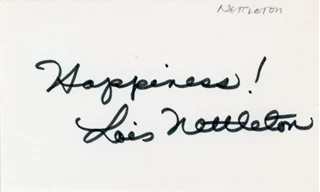 NETTLETON
Happiness!
Lois Nettleton